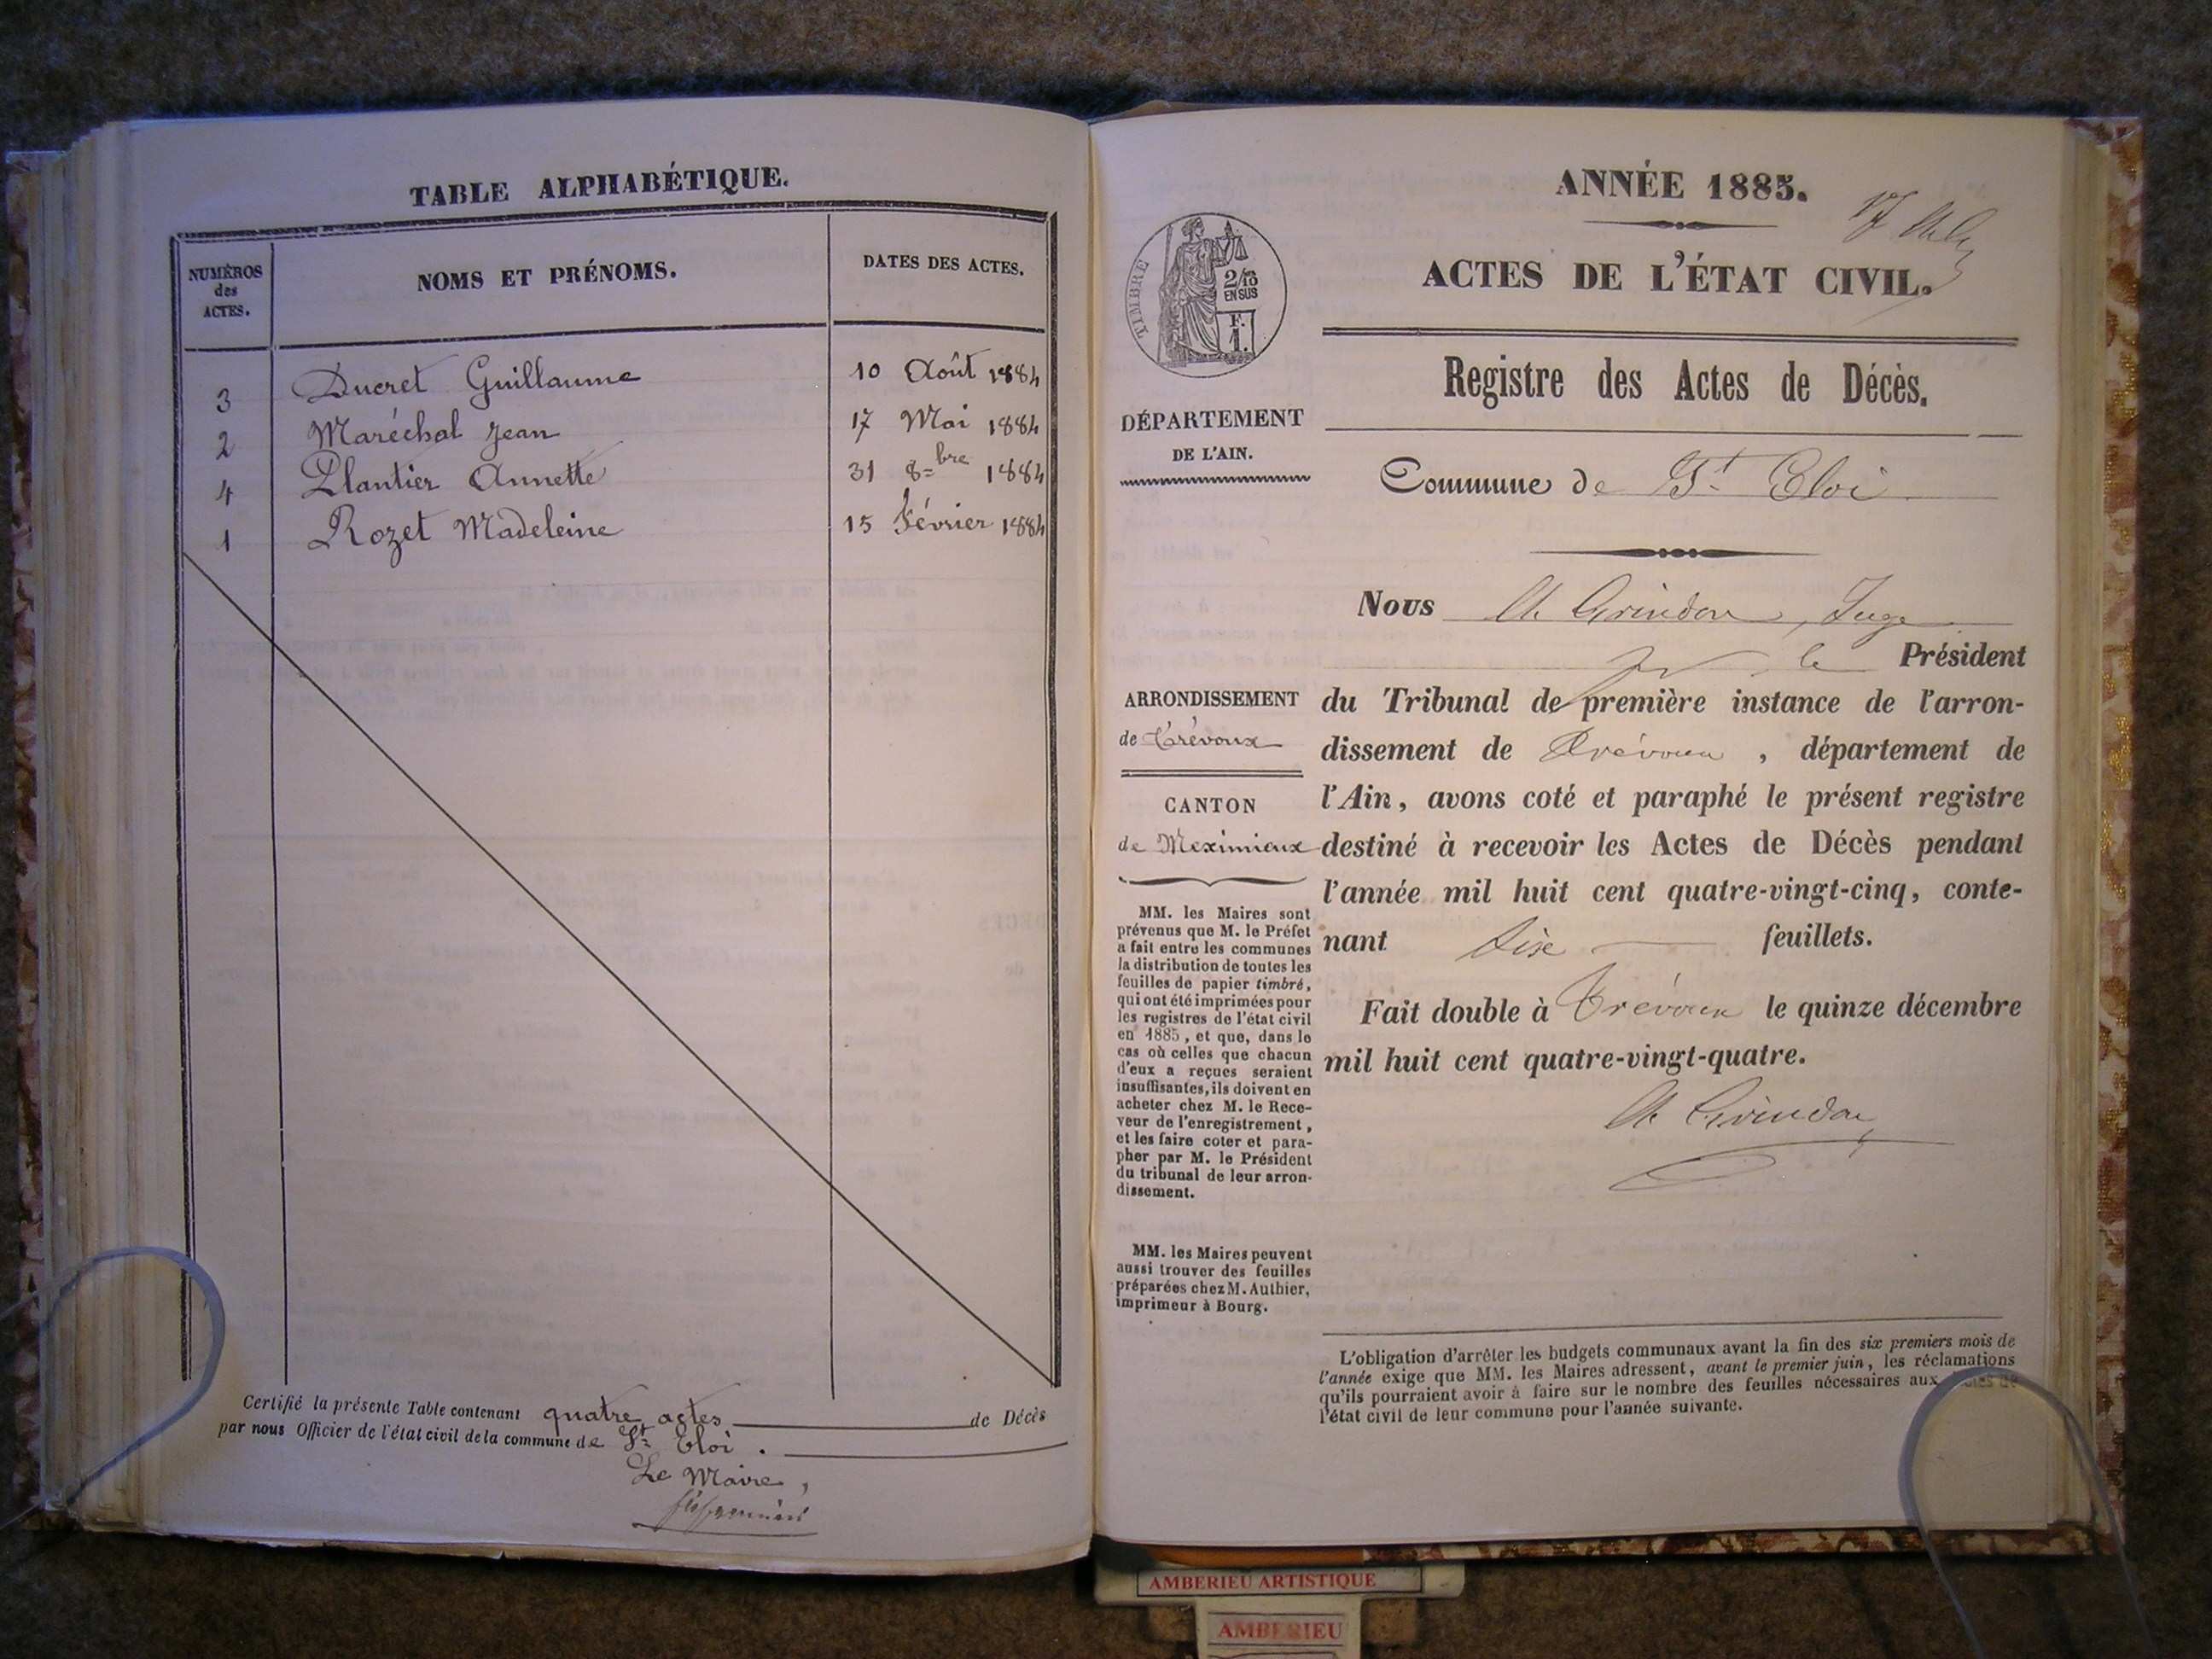 TABLE ALPHABÉTIQUE.
NUMÉROS
des
ACTES.
NOMS ET PRÉNOMS.
DATES DES ACTES.
3 Ducret Guillaume 10 Août 1884
2 Maréchal Jean 17 Mai 1884
4 Plantier Annette 31 8=bre 1884
1 Rozet Madeleine 15 Février 1884
Certifié la présente Table contenant quatre actes de Décès
par nous Officier de l'état civil de la commune de St Eloi.
Le Maire,
ANNÉE 1885.
ACTES DE L'ÉTAT CIVIL.
TIMBRE
2/10
EN SUS
F.
1.
Registre des Actes de Décès.
DÉPARTEMENT
DE L'AIN.
Commune de St Eloi
Nous Ch Grindon, Juge
le Président
ARRONDISSEMENT
de Trévoux
CANTON
de Meximieux
du Tribunal de première instance de l'arron-
dissement de Trévoux, département de
l'Ain, avons coté et paraphé le présent registre
destiné à recevoir les Actes de Décès pendant
l'année mil huit cent quatre-vingt-cinq, conte-
nant six feuillets.
Fait double à Trévoux le quinze décembre
mil huit cent quatre-vingt-quatre.
Ch Grindon
MM. les Maires sont
prévenus que M. le Préfet
a fait entre les communes
la distribution de toutes les
feuilles de papier timbré,
qui ont été imprimées pour
les registres de l'état civil
en 1885, et que, dans le
cas où celles que chacun
d'eux a reçues seraient
insuffisantes, ils doivent en
acheter chez M. le Rece-
veur de l'enregistrement,
et les faire coter et para-
pher par M. le Président
du tribunal de leur arron-
dissement.
MM. les Maires peuvent
aussi trouver des feuilles
préparées chez M. Authier,
imprimeur à Bourg.
L'obligation d'arrêter les budgets communaux avant la fin des six premiers mois de
l'année exige que MM. les Maires adressent, avant le premier juin, les réclamations
qu'ils pourraient avoir à faire sur le nombre des feuilles nécessaires aux
l'état civil de leur commune pour l'année suivante.
AMBERIEU ARTISTIQUE
AMBERIEU